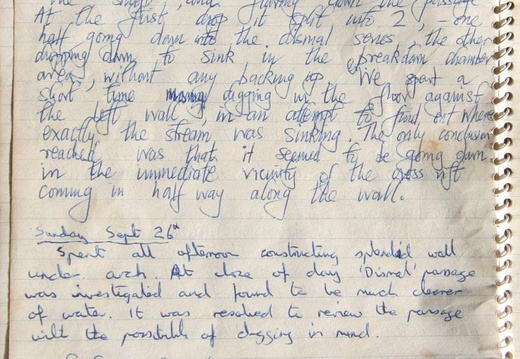 the and flowing down the passage
At the first drop it split into 2, - one
half going down into the dismal series, the other
dropping down to sink in the breakdown chamber
area, without any backing up. We spent a
short time digging in the floor against
the left wall in an attempt to find out where
exactly the stream was sinking. The only conclusion
reached was that it seemed to be going down
in the immediate vicinity of the cross rift
coming in half way along the wall.
Sunday Sept 26th
Spent all afternoon constructing splendid wall
under arch. At close of day 'Dismal' passage
was investigated and found to be much clearer
of water. It was resolved to review the passage
with the possibility of digging in mind.